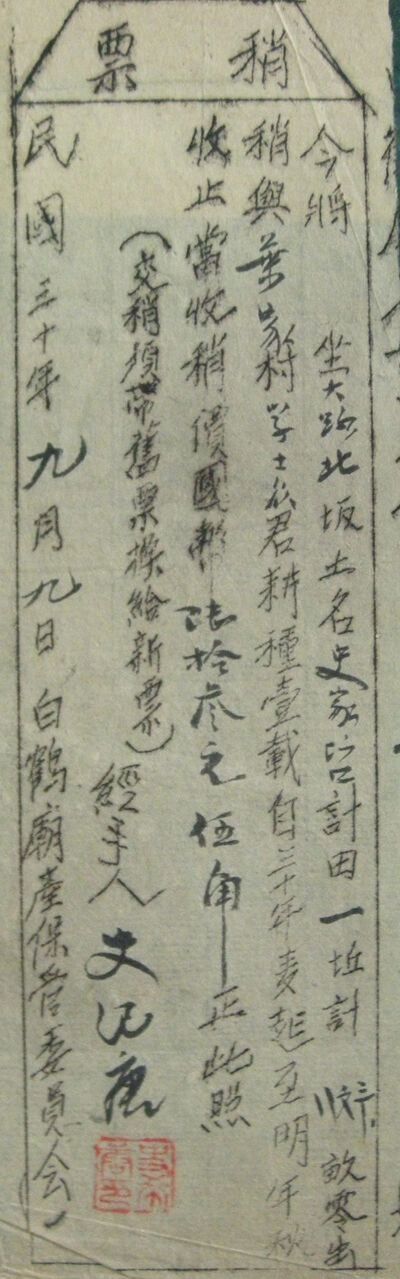 稍票
今將 坐大路北坂土名史家 計田一坵計 畝零出
稍與葉家村學士 君耕種壹載自三十年麦起至明年秋
收止當收稍價國幣陆拾叁元伍角正此照
（交稍須带舊票換給新票）經手人
民國三十年九月九日白鶴廟產保管委員会